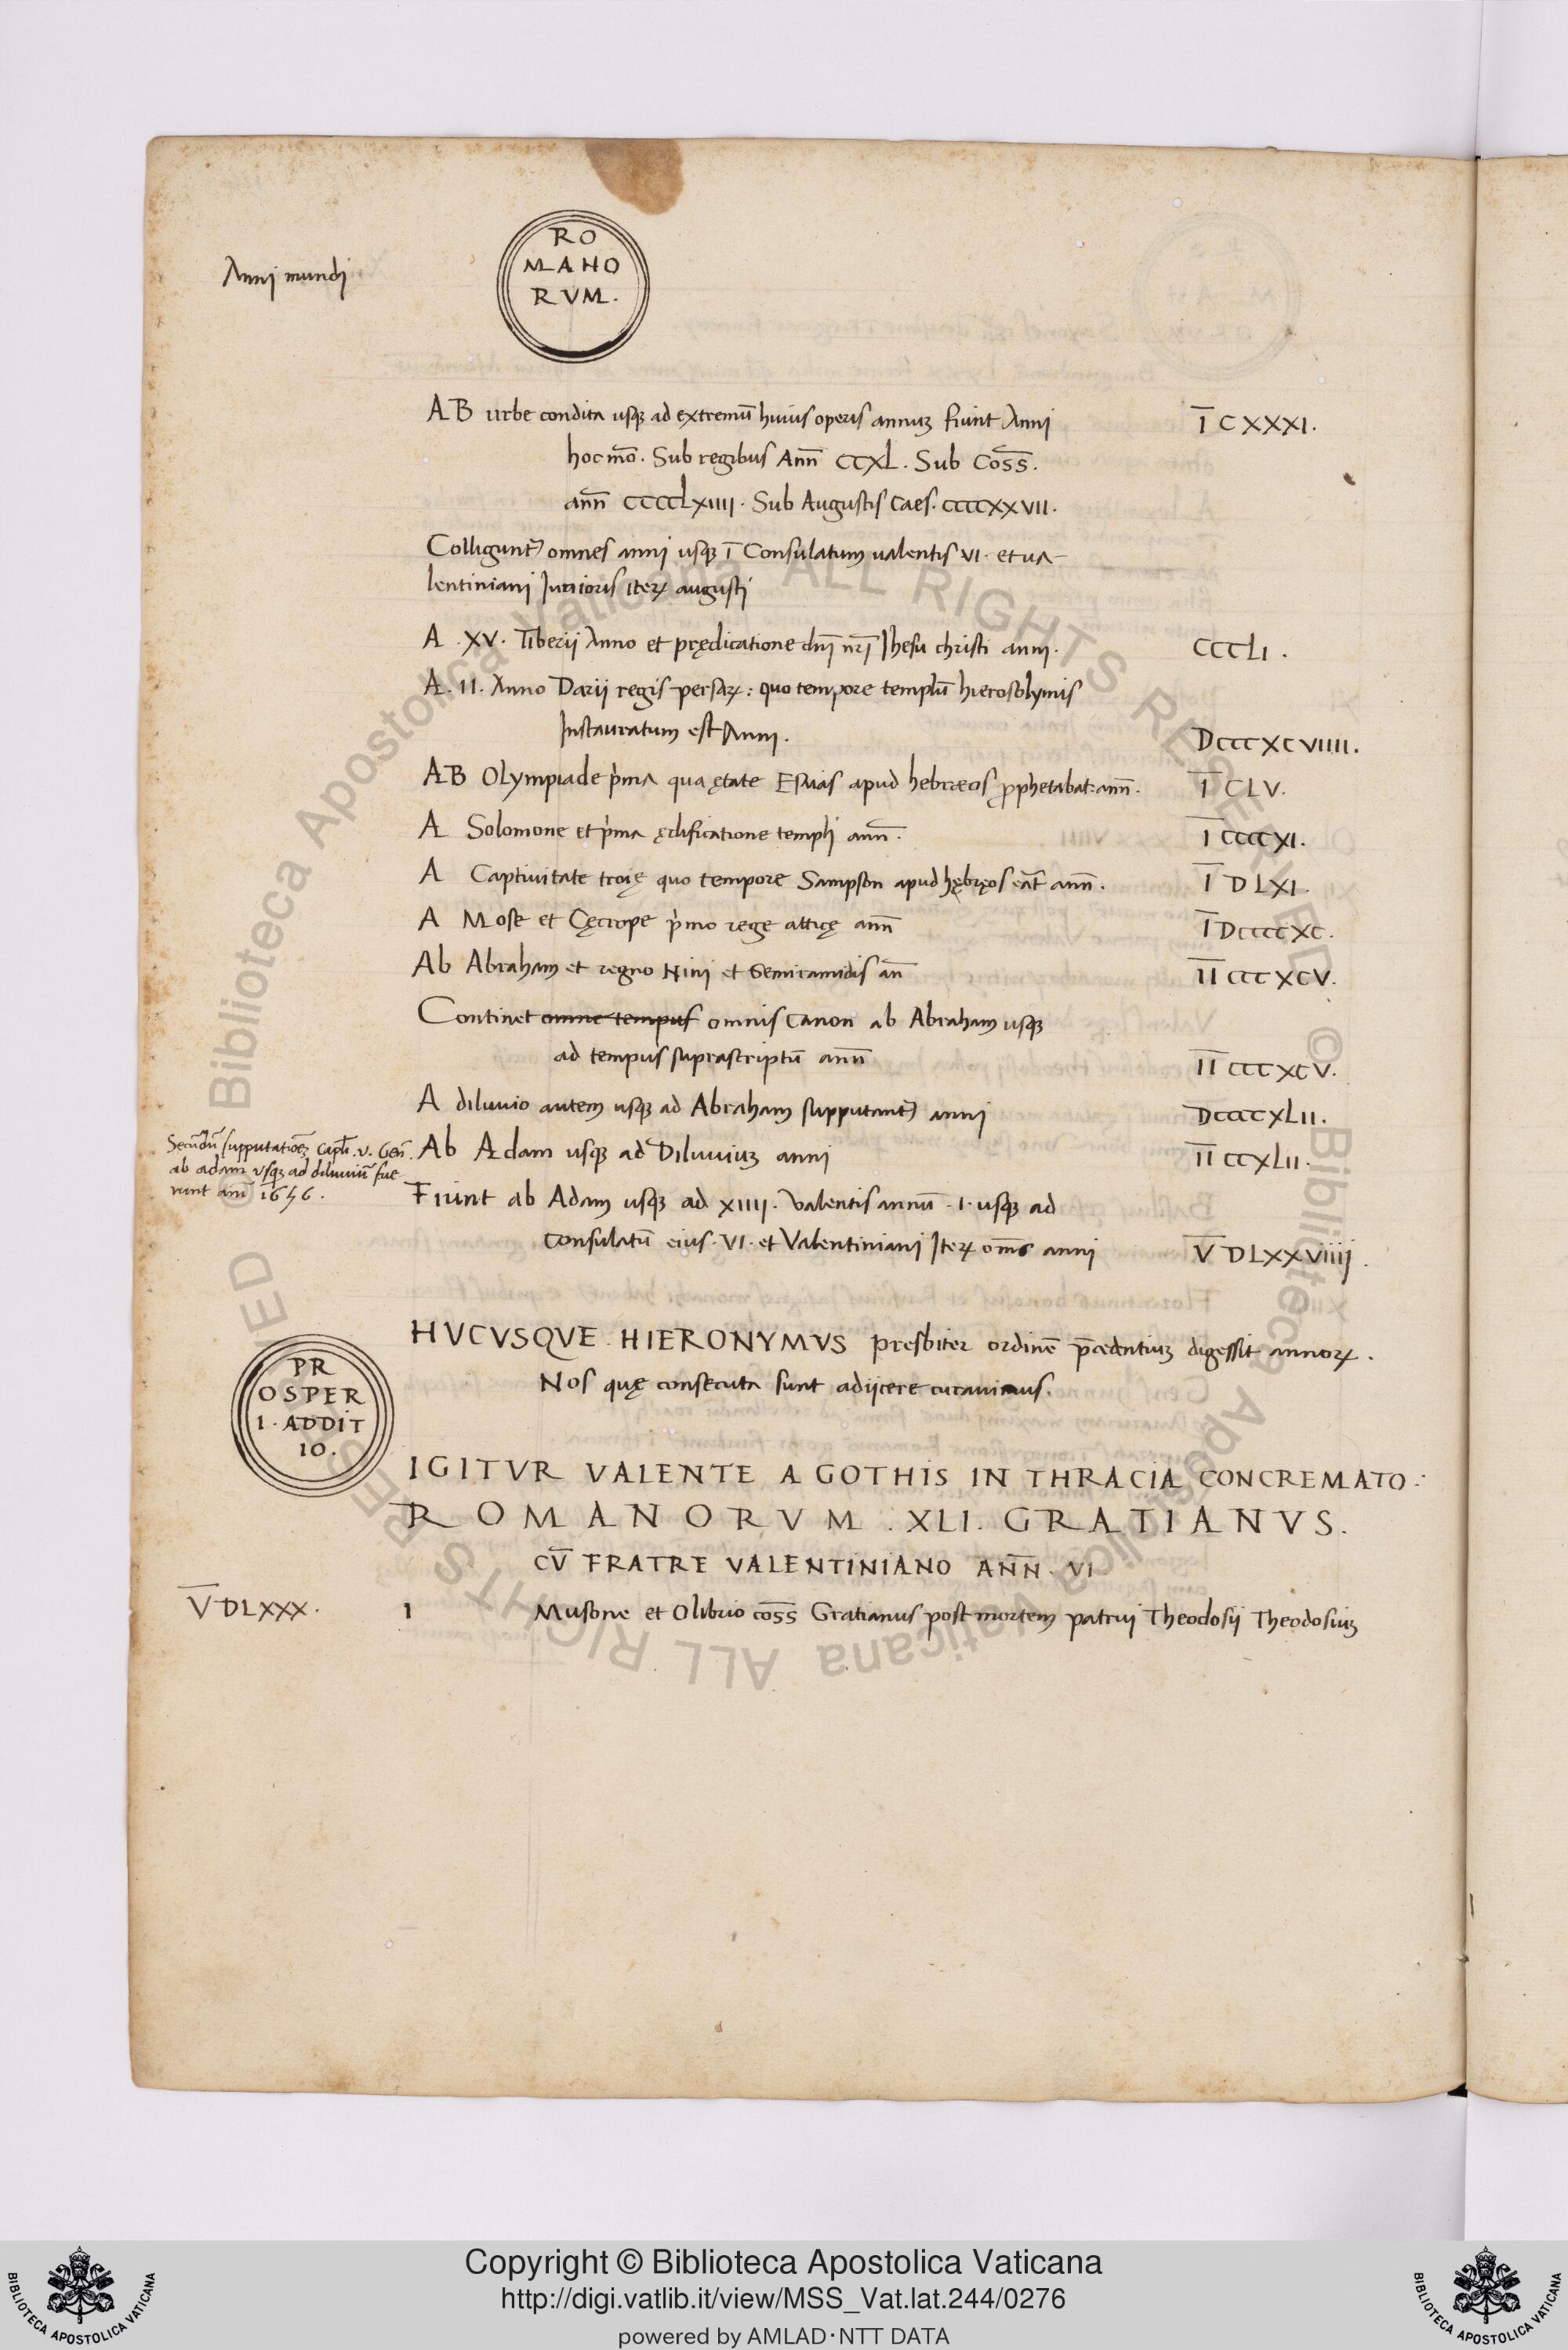 Anni mundi
RO
MANO
RVM.
AB urbe condita usq; ad extremū huius operis annuʒ fiunt Anni ĪCXXXI.
hoc mō. Sub regibus Anñ CCXL. Sub Cos̄s̄.
anñ CCCCLXIIII. Sub Augustis Caes. CCCCXXVII.
Colligunt᷑ omnes anni usq; ī Consulatum valentis VI. et va-
lentiniani Junioris Iteꝝ augusti
A .XV. Tiberii Anno et prędicatione dn̄i nr̄i Jhesu christi anni. CCCLI.
A. II. Anno Darii regis persaꝝ: quo tempore templū hierosolymis
Instauratum est Anni. DCCCXCVIIII.
AB Olympiade p̓ma qua ętate Esaias apud hebraeos ꝓphetabat: anñ. ĪCLV.
A Solomone et p̓ma ędificatione templi anñ. ĪCCCCXI.
A Captivitate troię quo tempore Sampson apud hębręos eāt anñ. ĪDLXI.
A Mose et Cęcrope p̓mo rege atticę anñ ĪDCCCCXC.
Ab Abraham et regno Nini et Semiramidis an̄ ĪĪCCCXCV.
Continet omne tempus omnis Canon ab Abraham usq;
ad tempus suprascriptū anñ ĪĪCCCXCV.
A diluvio autem usq; ad Abraham supputant᷑ anni DCCCCXLII.
Secūdū supputatiōeʒ Capĺi .v. Geñ.
ab adam usq; ad diluviū fue
runt anñ 1656.
Ab Adam usq; ad Diluviuʒ anni ĪĪCCXLII.
Fiunt ab Adam usq; ad XIIII. Valentis annū .I. usq; ad
Consulatū eius .VI. et Valentiniani Iteꝝ om̄s anni V̄DLXXVIIIJ.
HVCVSQVE HIERONYMVS presbiter ordinē p̄cedentiuʒ digessit annoꝝ.
Nos quę consecuta sunt adijcere curavimus.
PR
OSPER
I. ADDIT
IO.
IGITVR VALENTE A GOTHIS IN THRACIA CONCREMATO:
ROMANORVM .XLI. GRATIANVS.
CV̄ FRATRE VALENTINIANO AN̄N̄. VI
V̄DLXXX. I Musone et Olibrio cos̄s̄ Gratianus post mortem patrui Theodosij Theodosiuʒ
© Biblioteca Apostolica Vaticana ALL RIGHTS RESERVED © Biblioteca Apostolica Vaticana ALL RIGHTS RESERVED
Copyright © Biblioteca Apostolica Vaticana
http://digi.vatlib.it/view/MSS_Vat.lat.244/0276
powered by AMLAD·NTT DATA
BIBLIOTECA APOSTOLICA VATICANA
BIBLIOTECA APOSTOLICA VATICANA